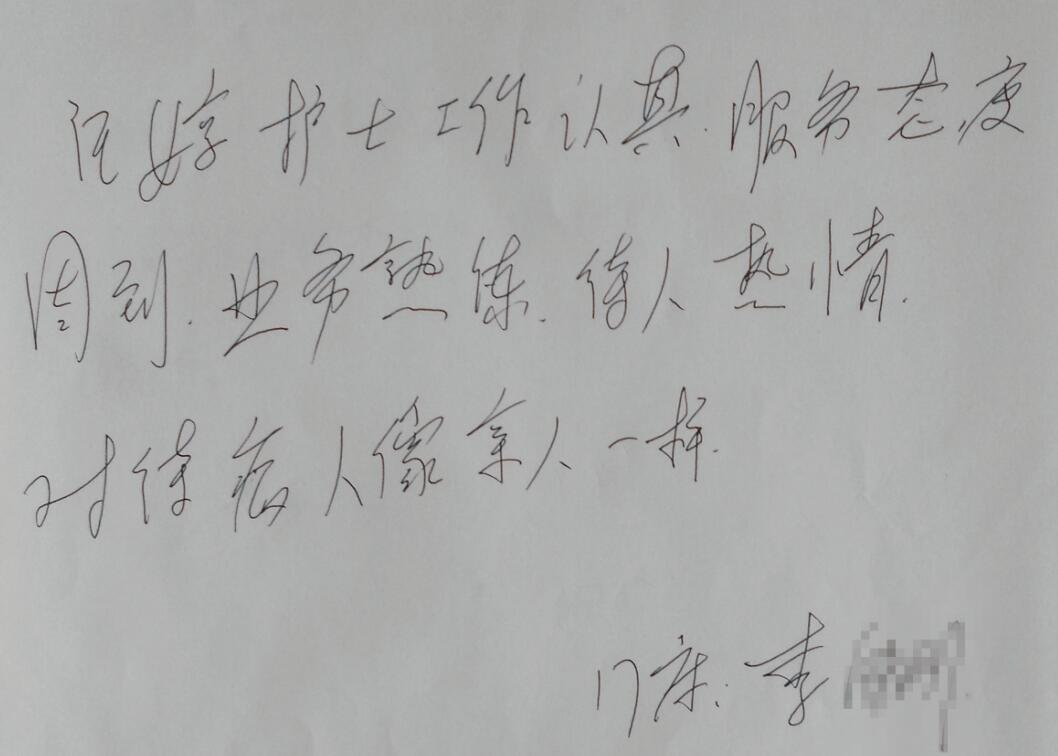 护士工作认真.服务态度
周到.业务熟练.待人热情.
对待病人像亲人一样.
17床:李